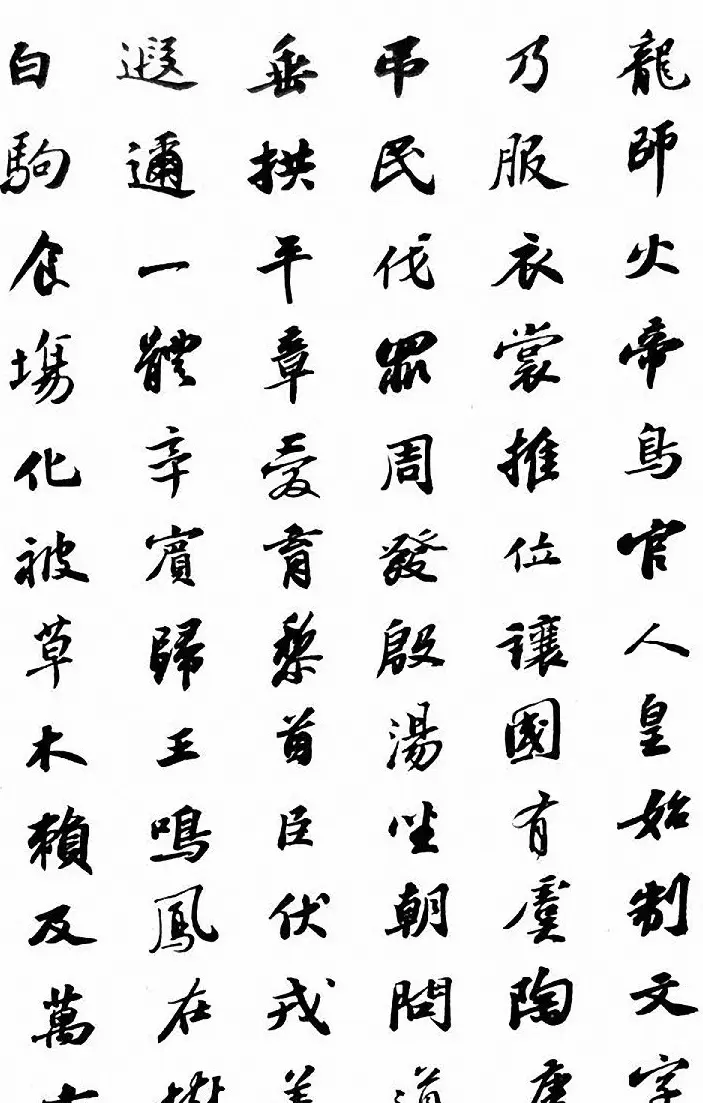 龍師火帝鳥官人皇始制文字
乃服衣裳推位讓國有虞陶唐
吊民伐罪周發殷湯坐朝問道
垂拱平章愛育黎首臣伏戎羌
遐邇一體率賓歸王鳴鳳在
白駒食塲化被草木賴及萬